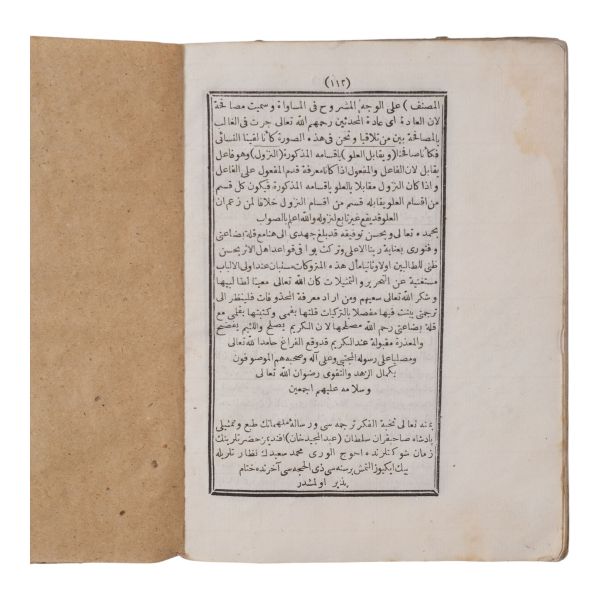 (١١٢)
المصنف ) على الوجه المشروح فى المساواة وسميت مصافحة
لان العادة اى عادة المحدثين رحمهم الله تعالى جرت فى الغالب
بالمصافحة بين من تلاقيا ونحن فى هذه الصورة كأنا لقينا النسائى
فكأنا صافحنا (ويقابل العلو) باقسامه المذكورة (النزول) وهو فاعل
يقابل لان الفاعل والمفعول اذا كانا معرفة قدم المفعول على الفاعل
واذا كان النزول مقابلا بالعلو باقسامه المذكورة فيكون كل قسم
من اقسام العلو يقابله قسم من اقسام النزول خلافا لمن زعم ان
العلو قد يقع غير تابع لنزوله والله اعلم بالصواب
بحمده تعالى وبحسن توفيقه قد بلغ جهدى الى هنا مع قلة بضاعتى
وفتورى بعناية ربنا الاعلى وتركت فى قواعد اهل الاثر بحسن
ظنى للطالبين اولا وثانيا مآل هذه المتروكات عند اولى الالباب
مستغنية عن التحرير والتمثيلات كان الله تعالى معينا لطالبيها
وشكر الله تعالى سعيهم ومن اراد معرفة المحذوفات فلينظر الى
ترجمتى بينت فيها مفصلا بالتركيات قلتها بفمى وكتبتها بقلمى مع
قلة بضاعتى رحم الله مصلحها لان الكريم يصلح واللئيم يفضح
والمعذرة مقبولة عند الكريم قد وقع الفراغ حامدا لله تعالى
ومصليا على رسوله المجتبى وعلى آله وصحبه هم الموصوفون
بكمال الزهد والتقوى رضوان الله تعالى
وسلامه عليهم اجمعين
بمنه تعالى نخبة الفكر ترجمه سى ورساله طبع وتمثيلى
پادشاه صاحبقران سلطان (عبد المجيد خان) افندمز حضرتلرينك
زمان شوكتلرنده احوج الورى محمد سعيدك نظارتيله
بيك ايكيوز التمش برسنه سى ذى الحجه سى آخرنده ختام
پذير اولمشدر